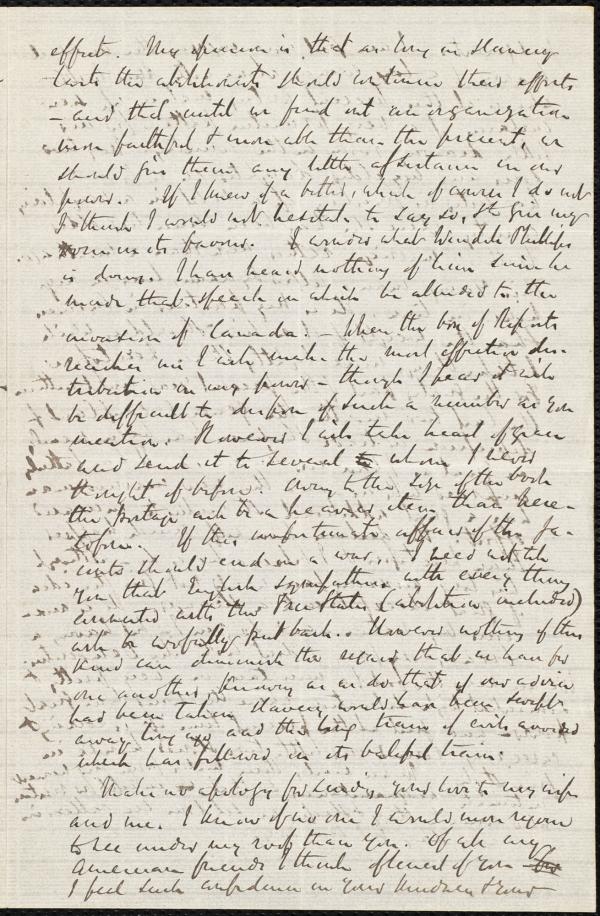 effort. My opinion is that as long as slavery
lasts the abolitionists should continue their efforts
- and that until we find out an organization
more faithful & more able than the present, we
should give them any little assistance in our
power. If I knew of a better, which of course I do not
I think I would not hesitate to say so, & give my
in its favour. I wonder what Wendell Phillips
is doing. I have heard nothing of him since he
made that speech in which he alluded to the
invasion of Canada. - When the box of Reports
reaches me I will make the most effective dis-
tribution in my power - though I fear it will
be difficult to dispose of such a number as you
mention. However I will take heart of grace
and send it to several to whom I never
thought of before. Owing to the size of the book
the postage will be a heavier item than here-
tofore. If this unfortunate affair of the
should end in a war, I need not tell
you that English sympathies with every thing
connected with the Free States (abolition included)
will be woefully put back. However nothing of this
kind can diminish the regard that we have for
one another, knowing as we do that if our advice
had been taken Slavery would have been swept
away long ago and the long train of evils avoided
which has followed in its baleful train.
Make no apology for sending your love to my wife
and me. I know of no one I would more rejoice
to see under my roof than you. Of all my
American friends I think oftenest of you
I feel such confidence in your kindness & your